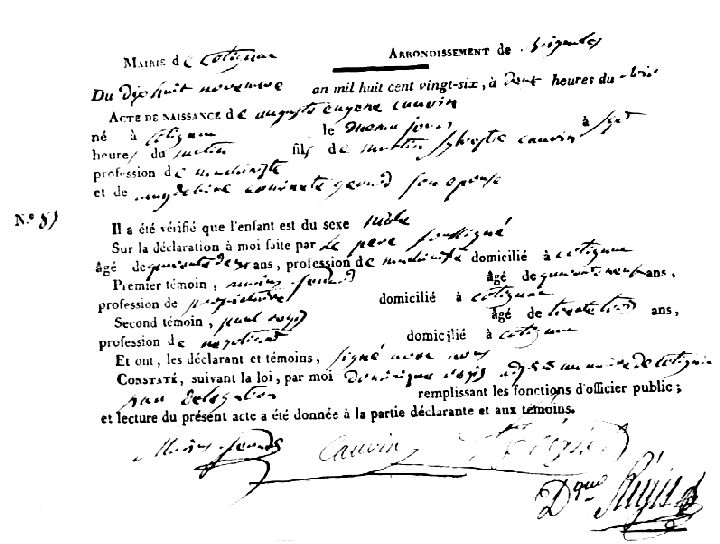 Mairie de cotignac Arrondissement de Brignoles
Du Dix huit novembre an mil huit cent vingt-six, à Deux heures du soir
Acte de naissance de auguste eugene cauvin
né à cotignac le meme jour à sept
heures du matin fils de martin sylvestre cauvin
profession de
et de magdeleine gerard son epouse
N.º 81
Il a été vérifié que l'enfant est du sexe mâle
Sur la déclaration à moi faite par le pere soussigné
âgé de quarante deux ans, profession de domicilié à cotignac
Premier témoin, âgé de quarante neuf ans,
profession de propriétaire domicilié à cotignac
Second témoin, paul âgé de trente trois ans,
profession de domicilié à cotignac
Et ont, les déclarant et témoins, signé avec nous
Constaté, suivant la loi, par moi Dominique adjoint au maire de cotignac
par délégation remplissant les fonctions d'officier public;
et lecture du présent acte a été donnée à la partie déclarante et aux témoins.
Cauvin
Dque Régis